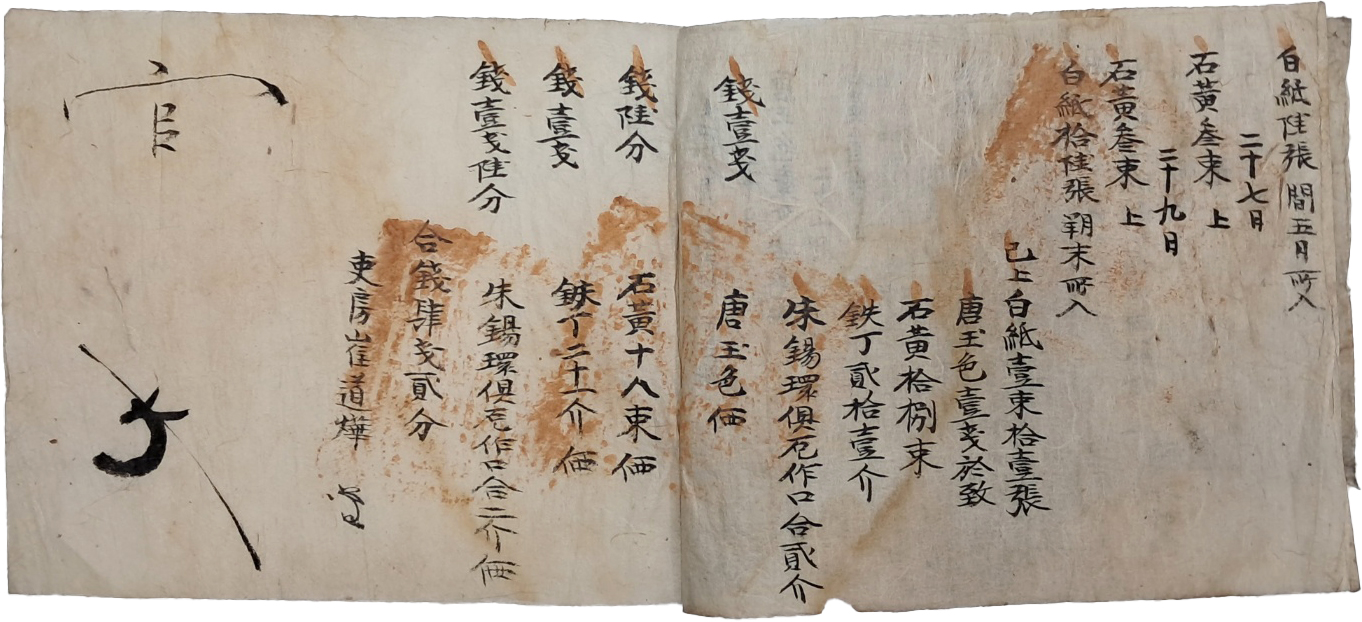 白紙陸張 閏五日所入
二十七日
石黃叄束 上
二十九日
石黃叄束 上
白紙拾陸張 朔末所入
已上白紙壹束拾壹張
唐玉色壹戔於致
石黃拾捌束
鉄丁貳拾壹介
朱錫環俱尾作口合貳介
錢壹戔 唐玉色価
錢陸分 石黃十八束価
錢壹戔 鉄丁二十一介価
錢壹戔陸分 朱錫環俱尾作口合二介価
合錢肆戔貳分
吏房崔道燁
官